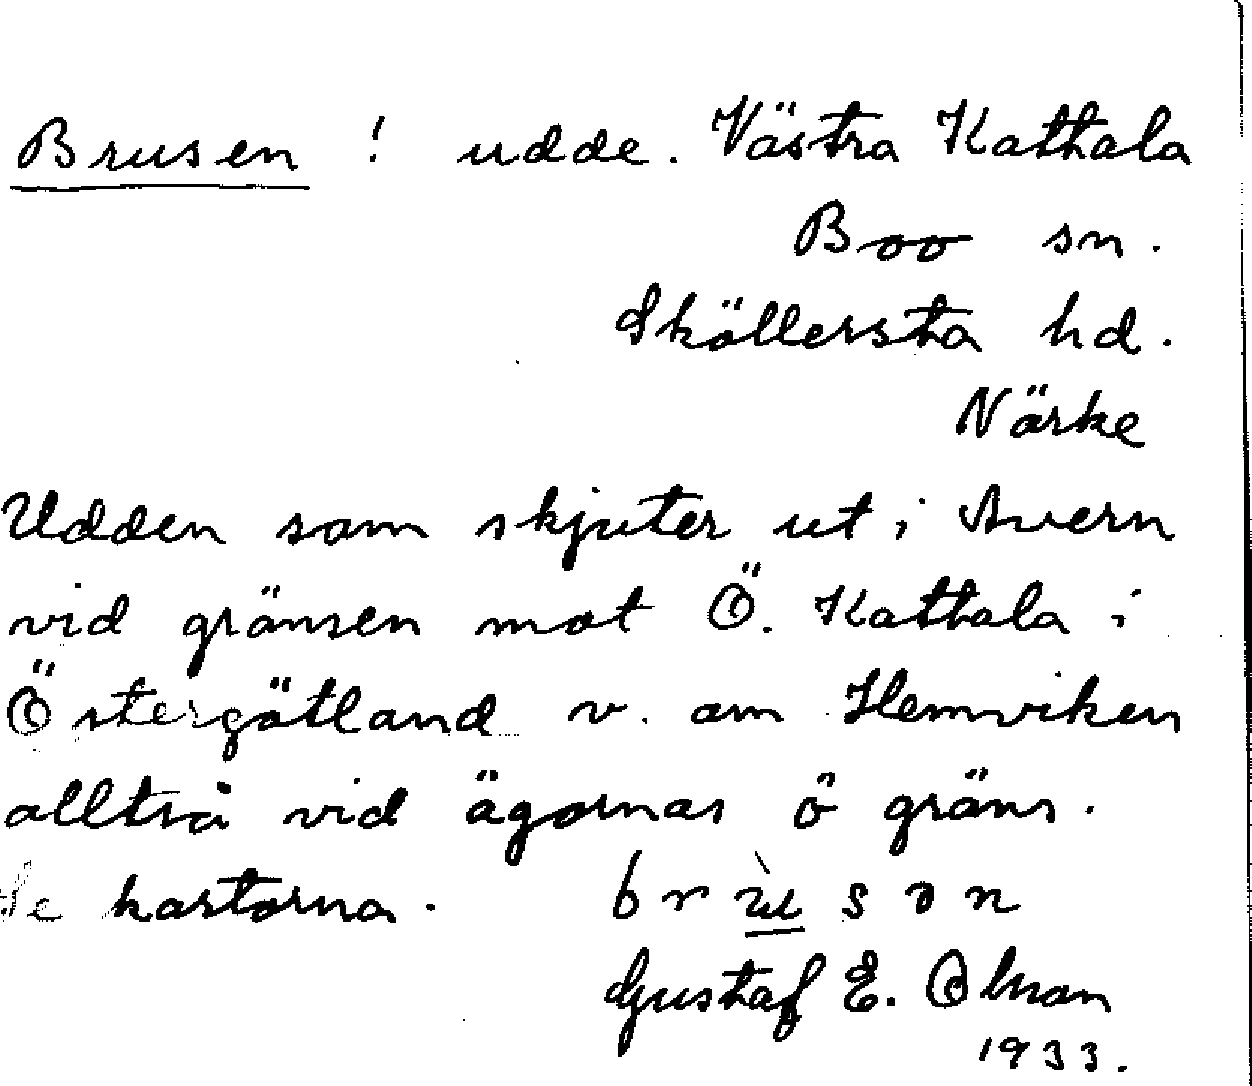 Brusen ! udde. Västra Kattala
Boo sn.
Sköllersta hd.
Närke
Udden som skjuter ut i Avern
vid gränsen mot Ö. Kattala i
Östergötland v. om Hemviken
alltså vid ägornas ö gräns.
Se kartorna.
Gustaf E. Olsson
1933.